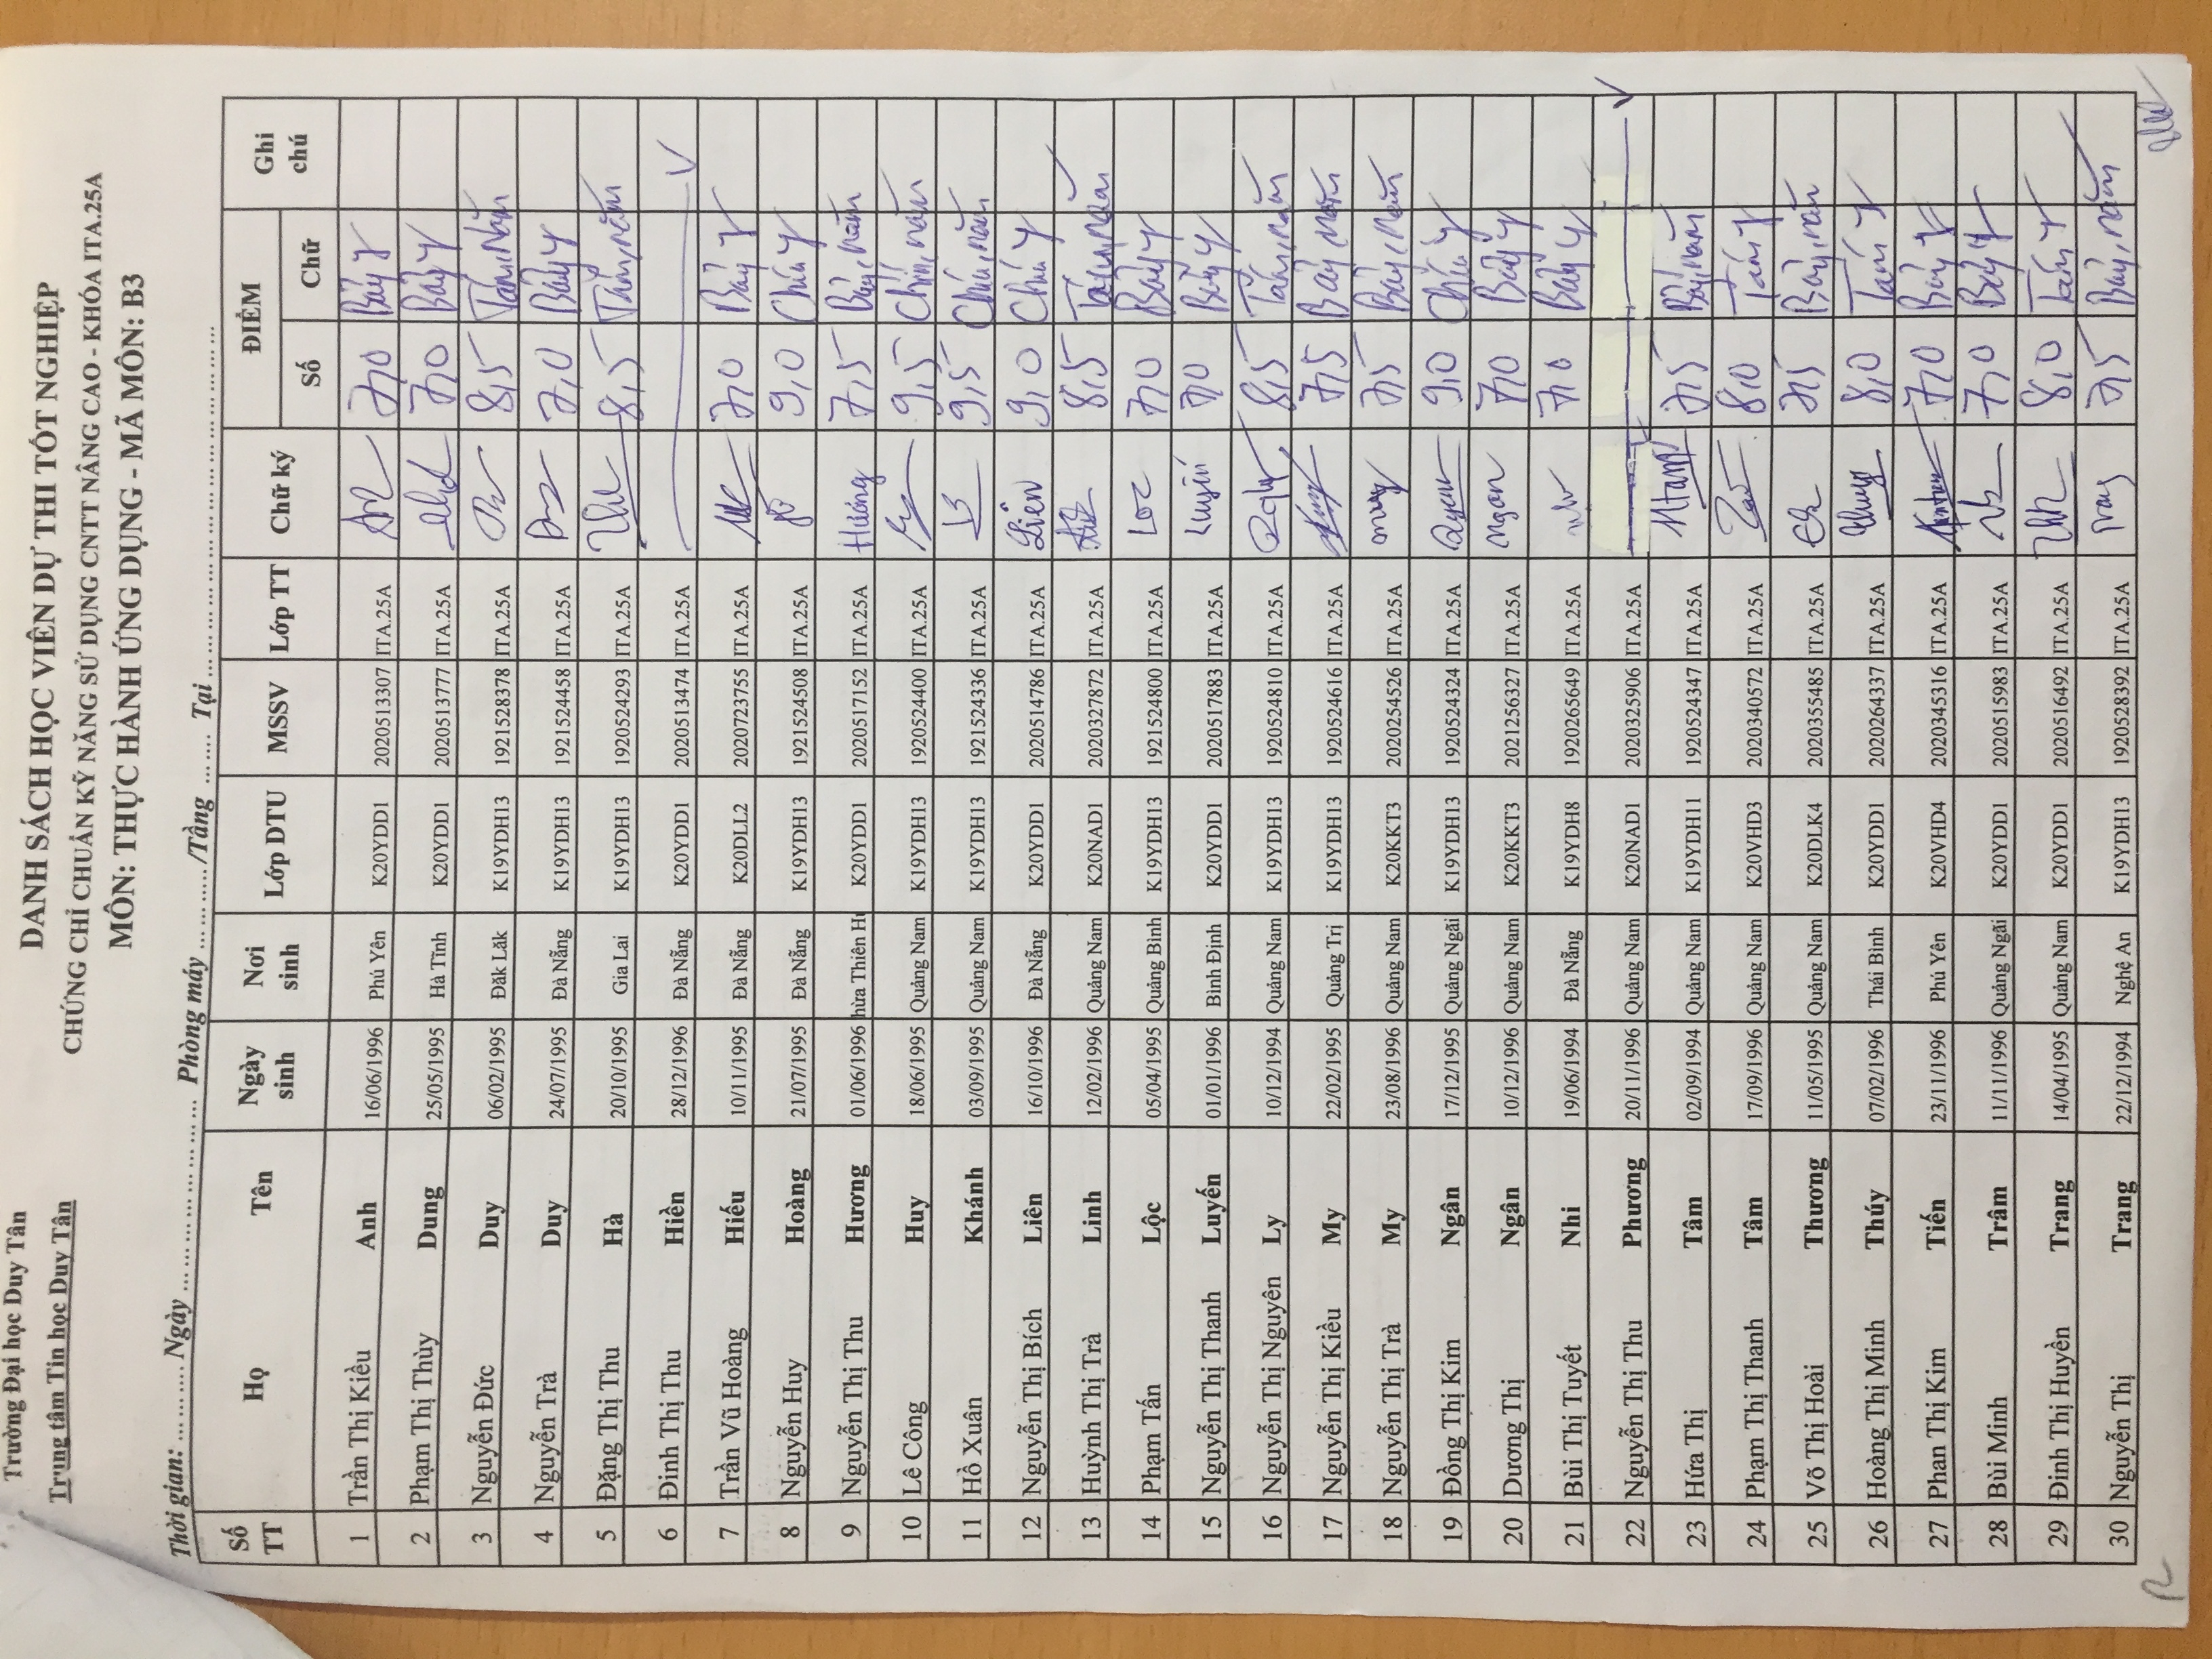 Trường Đại học Duy Tân
Trung tâm Tin học Duy Tân
DANH SÁCH HỌC VIÊN DỰ THI TỐT NGHIỆP
CHỨNG CHỈ CHUẨN KỸ NĂNG SỬ DỤNG CNTT NÂNG CAO - KHÓA ITA.25A
MÔN: THỰC HÀNH ỨNG DỤNG - MÃ MÔN: B3
Thời gian: ............ Ngày ... ... ... ... ... ... Phòng máy ... ... ... .../Tầng ... ... Tại ... ... ... ... ... ...
Số TT Họ Tên Ngày sinh Nơi sinh Lớp DTU MSSV Lớp TT Chữ ký ĐIỂM Ghi chú
Số Chữ
1 Trần Thị Kiều Anh 16/06/1996 Phú Yên K20YDD1 2020513307 ITA.25A 7,0 Bảy
2 Phạm Thị Thùy Dung 25/05/1995 Hà Tĩnh K20YDD1 2020513777 ITA.25A 7,0 Bảy
3 Nguyễn Đức Duy 06/02/1995 Đăk Lăk K19YDH13 1921528378 ITA.25A 8,5 Tám, năm
4 Nguyễn Trà Duy 24/07/1995 Đà Nẵng K19YDH13 1921524458 ITA.25A 7,0 Bảy
5 Đặng Thị Thu Hà 20/10/1995 Gia Lai K19YDH13 1920524293 ITA.25A 8,5 Tám, năm
6 Đinh Thị Thu Hiền 28/12/1996 Đà Nẵng K20YDD1 2020513474 ITA.25A
7 Trần Vũ Hoàng Hiếu 10/11/1995 Đà Nẵng K20DLL2 2020723755 ITA.25A 7,0 Bảy
8 Nguyễn Huy Hoàng 21/07/1995 Đà Nẵng K19YDH13 1921524508 ITA.25A 9,0 Chín
9 Nguyễn Thị Thu Hương 01/06/1996 hừa Thiên Hu K20YDD1 2020517152 ITA.25A Hương 7,5 Bảy, năm
10 Lê Công Huy 18/06/1995 Quảng Nam K19YDH13 1920524400 ITA.25A 9,5 Chín, năm
11 Hồ Xuân Khánh 03/09/1995 Quảng Nam K19YDH13 1921524336 ITA.25A 9,5 Chín, năm
12 Nguyễn Thị Bích Liên 16/10/1996 Đà Nẵng K20YDD1 2020514786 ITA.25A Liên 9,0 Chín
13 Huỳnh Thị Trà Linh 12/02/1996 Quảng Nam K20NAD1 2020327872 ITA.25A 8,5 Tám, năm
14 Phạm Tấn Lộc 05/04/1995 Quảng Bình K19YDH13 1921524800 ITA.25A Lộc 7,0 Bảy
15 Nguyễn Thị Thanh Luyến 01/01/1996 Bình Định K20YDD1 2020517883 ITA.25A Luyến 7,0 Bảy
16 Nguyễn Thị Nguyên Ly 10/12/1994 Quảng Nam K19YDH13 1920524810 ITA.25A 8,5 Tám, năm
17 Nguyễn Thị Kiều My 22/02/1995 Quảng Trị K19YDH13 1920524616 ITA.25A 7,5 Bảy, năm
18 Nguyễn Thị Trà My 23/08/1996 Quảng Nam K20KKT3 2020254526 ITA.25A 7,5 Bảy, năm
19 Đồng Thị Kim Ngân 17/12/1995 Quảng Ngãi K19YDH13 1920524324 ITA.25A 9,0 Chín
20 Dương Thị Ngân 10/12/1996 Quảng Nam K20KKT3 2021256327 ITA.25A Ngân 7,0 Bảy
21 Bùi Thị Tuyết Nhi 19/06/1994 Đà Nẵng K19YDH8 1920265649 ITA.25A 7,0 Bảy
22 Nguyễn Thị Thu Phương 20/11/1996 Quảng Nam K20NAD1 2020325906 ITA.25A
23 Hứa Thị Tâm 02/09/1994 Quảng Nam K19YDH11 1920524347 ITA.25A 7,5 Bảy, năm
24 Phạm Thị Thanh Tâm 17/09/1996 Quảng Nam K20VHD3 2020340572 ITA.25A 8,0 Tám
25 Võ Thị Hoài Thương 11/05/1995 Quảng Nam K20DLK4 2020355485 ITA.25A 7,5 Bảy, năm
26 Hoàng Thị Minh Thúy 07/02/1996 Thái Bình K20YDD1 2020264337 ITA.25A 8,0 Tám
27 Phan Thị Kim Tiến 23/11/1996 Phú Yên K20VHD4 2020345316 ITA.25A 7,0 Bảy
28 Bùi Minh Trâm 11/11/1996 Quảng Ngãi K20YDD1 2020515983 ITA.25A 7,0 Bảy
29 Đinh Thị Huyền Trang 14/04/1995 Quảng Nam K20YDD1 2020516492 ITA.25A 8,0 Tám
30 Nguyễn Thị Trang 22/12/1994 Nghệ An K19YDH13 1920528392 ITA.25A Trang 7,5 Bảy, năm